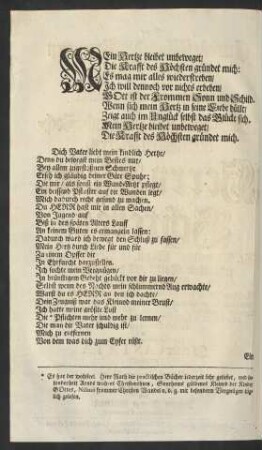 MEin Hertze bleibet unbeweget/
Die Krafft des Höchsten gründet mich:
Es mag mir alles wiederstreben/
Ich will dennoch vor nichts erbeben/
GOtt ist der Frommen Sonn und Schild.
Wenn sich mein Hertz in seine Liebe hüllt/
Zeigt auch im Unglück selbst das Glücke sich.
Mein Hertze bleibet unbeweget/
Die Krafft des Höchsten gründet mich.
Dich Vater liebt mein kindlich Hertze/
Denn du besorgst mein Bestes nur/
Bey allem zugestoßnen Schmertze
Erseh ich gläubig deiner Güte Spuhr;
Die mir/ als sonst ein Wund-Artzt pfleget/
Ein beissend Pflaster auf die Wunden legt/
Mich dadurch recht gesund zu machen.
Du HERR hast mir in allen Sachen/
Von Jugend auf
Biß in den späten Alters Lauff
An keinem Guten es ermangeln lassen:
Dadurch ward ich bewegt den Schluß zu fassen/
Mein Hertz durch Liebe für und für
Zu einem Opffer dir
In Ehrfurcht darzustellen.
Ich suchte mein Vergnügen/
In brünstigem Gebeht gebückt vor dir zu liegen/
Selbst wenn des Nachts mein schlummernd Aug erwachte/
Warst du es HERR an den ich dachte/
Dein Zeugniß war das Kleinod meiner Brust/
Ich hatte meine größte Lust
Die * Pflichten mehr und mehr zu lernen/
Die man dir Vater schuldig ist/
Mich zu entfernen
Von dem was dich zum Eyfer rüst.
Ein
* Es hat der wohlsel. Herr Rath die geistlichen Bücher jederzeit sehr geliebet, und in-
sonderheit Arnds wahres Christenthum,
GOttes, frommer Christen Wandel u. d. g. mit besonderm Vergnügen täg-
lich gelesen.